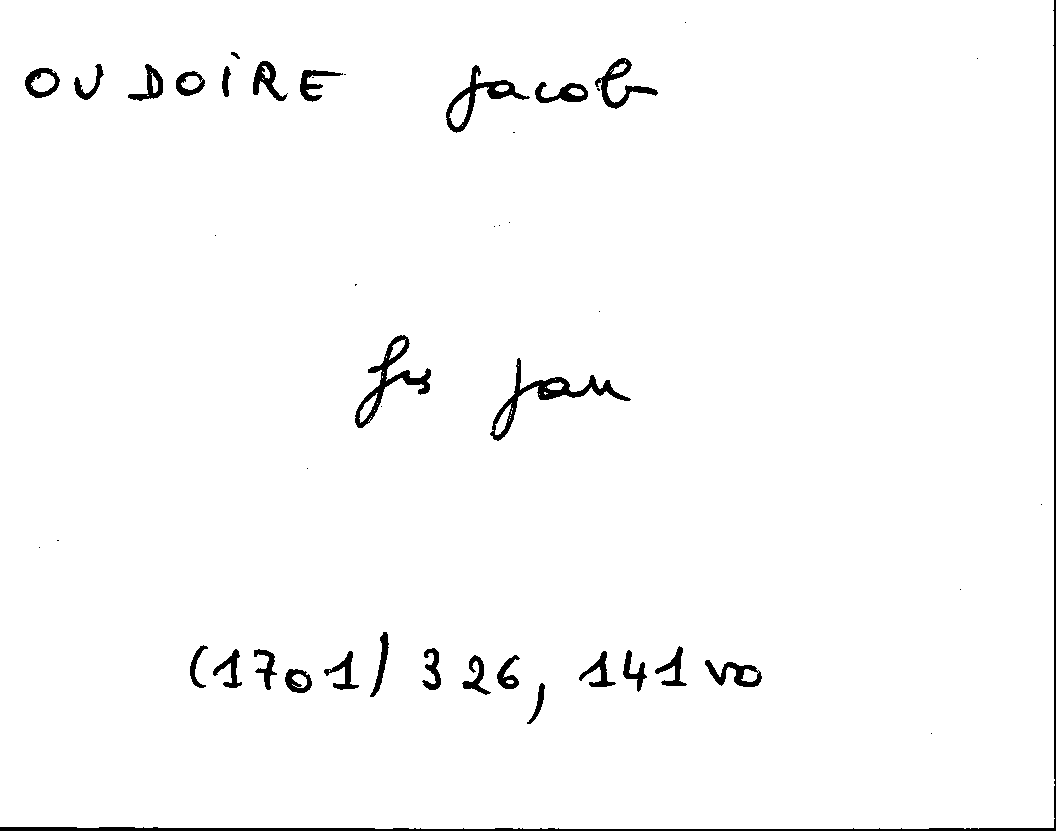 OUDOIRE Jacob
fs Jan
(1701) 326, 141 vo